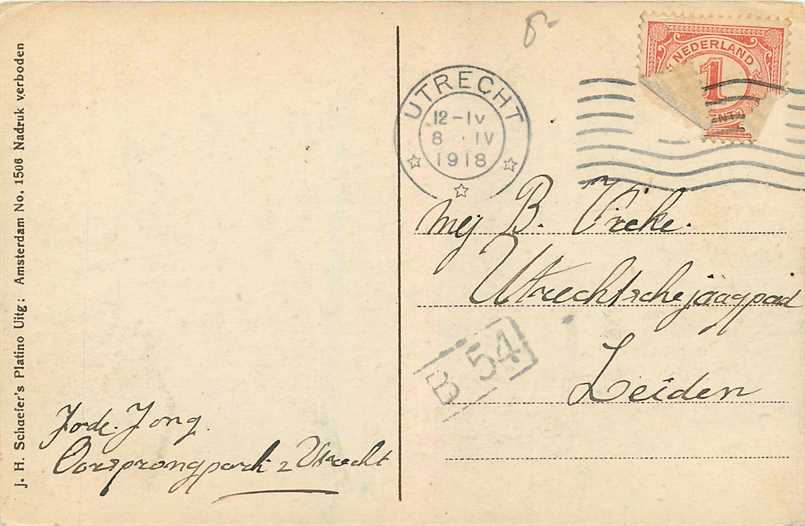 J. H. Schaefer's Platino Uitg: Amsterdam No. 1506 Nadruk verboden
8-
NEDERLAND
1
UTRECHT
12-IV
8 · IV
1918
Mej B. Vreke.
Utrechtschejaagpad
Leiden
B 54
Jode. Jong.
Oorsprongpark 2 Utrecht